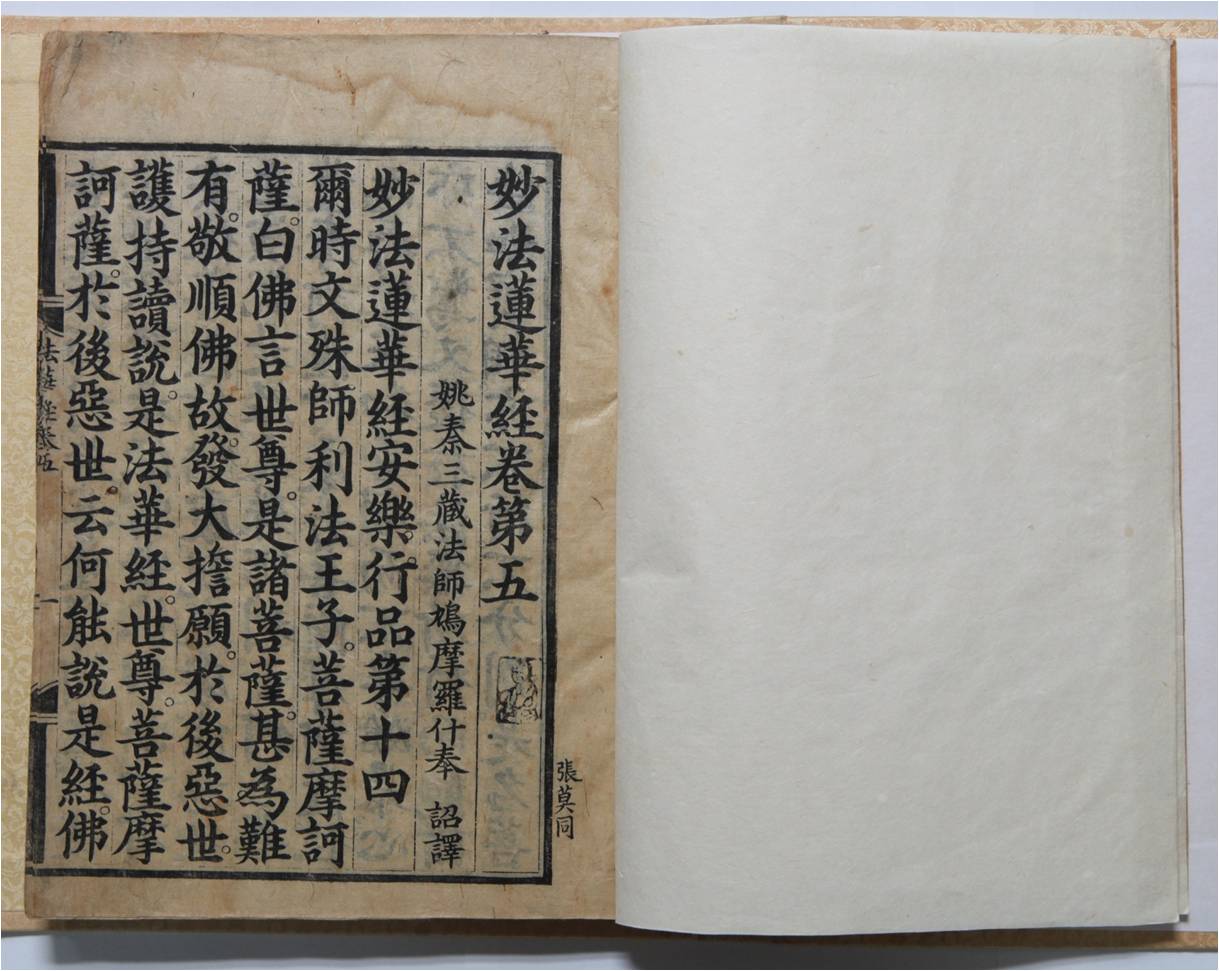 妙法蓮華經卷第五
姚秦三藏法師鳩摩羅什奉 詔譯
妙法蓮華經安樂行品第十四
爾時文殊師利法王子。菩薩摩訶
薩。白佛言世尊。是諸菩薩。甚為難
有。敬順佛故。發大擔願。於後惡世。
護持讀說。是法華經。世尊。菩薩摩
訶薩。於後惡世。云何能說是經。佛
張莫同
法華經卷五
一